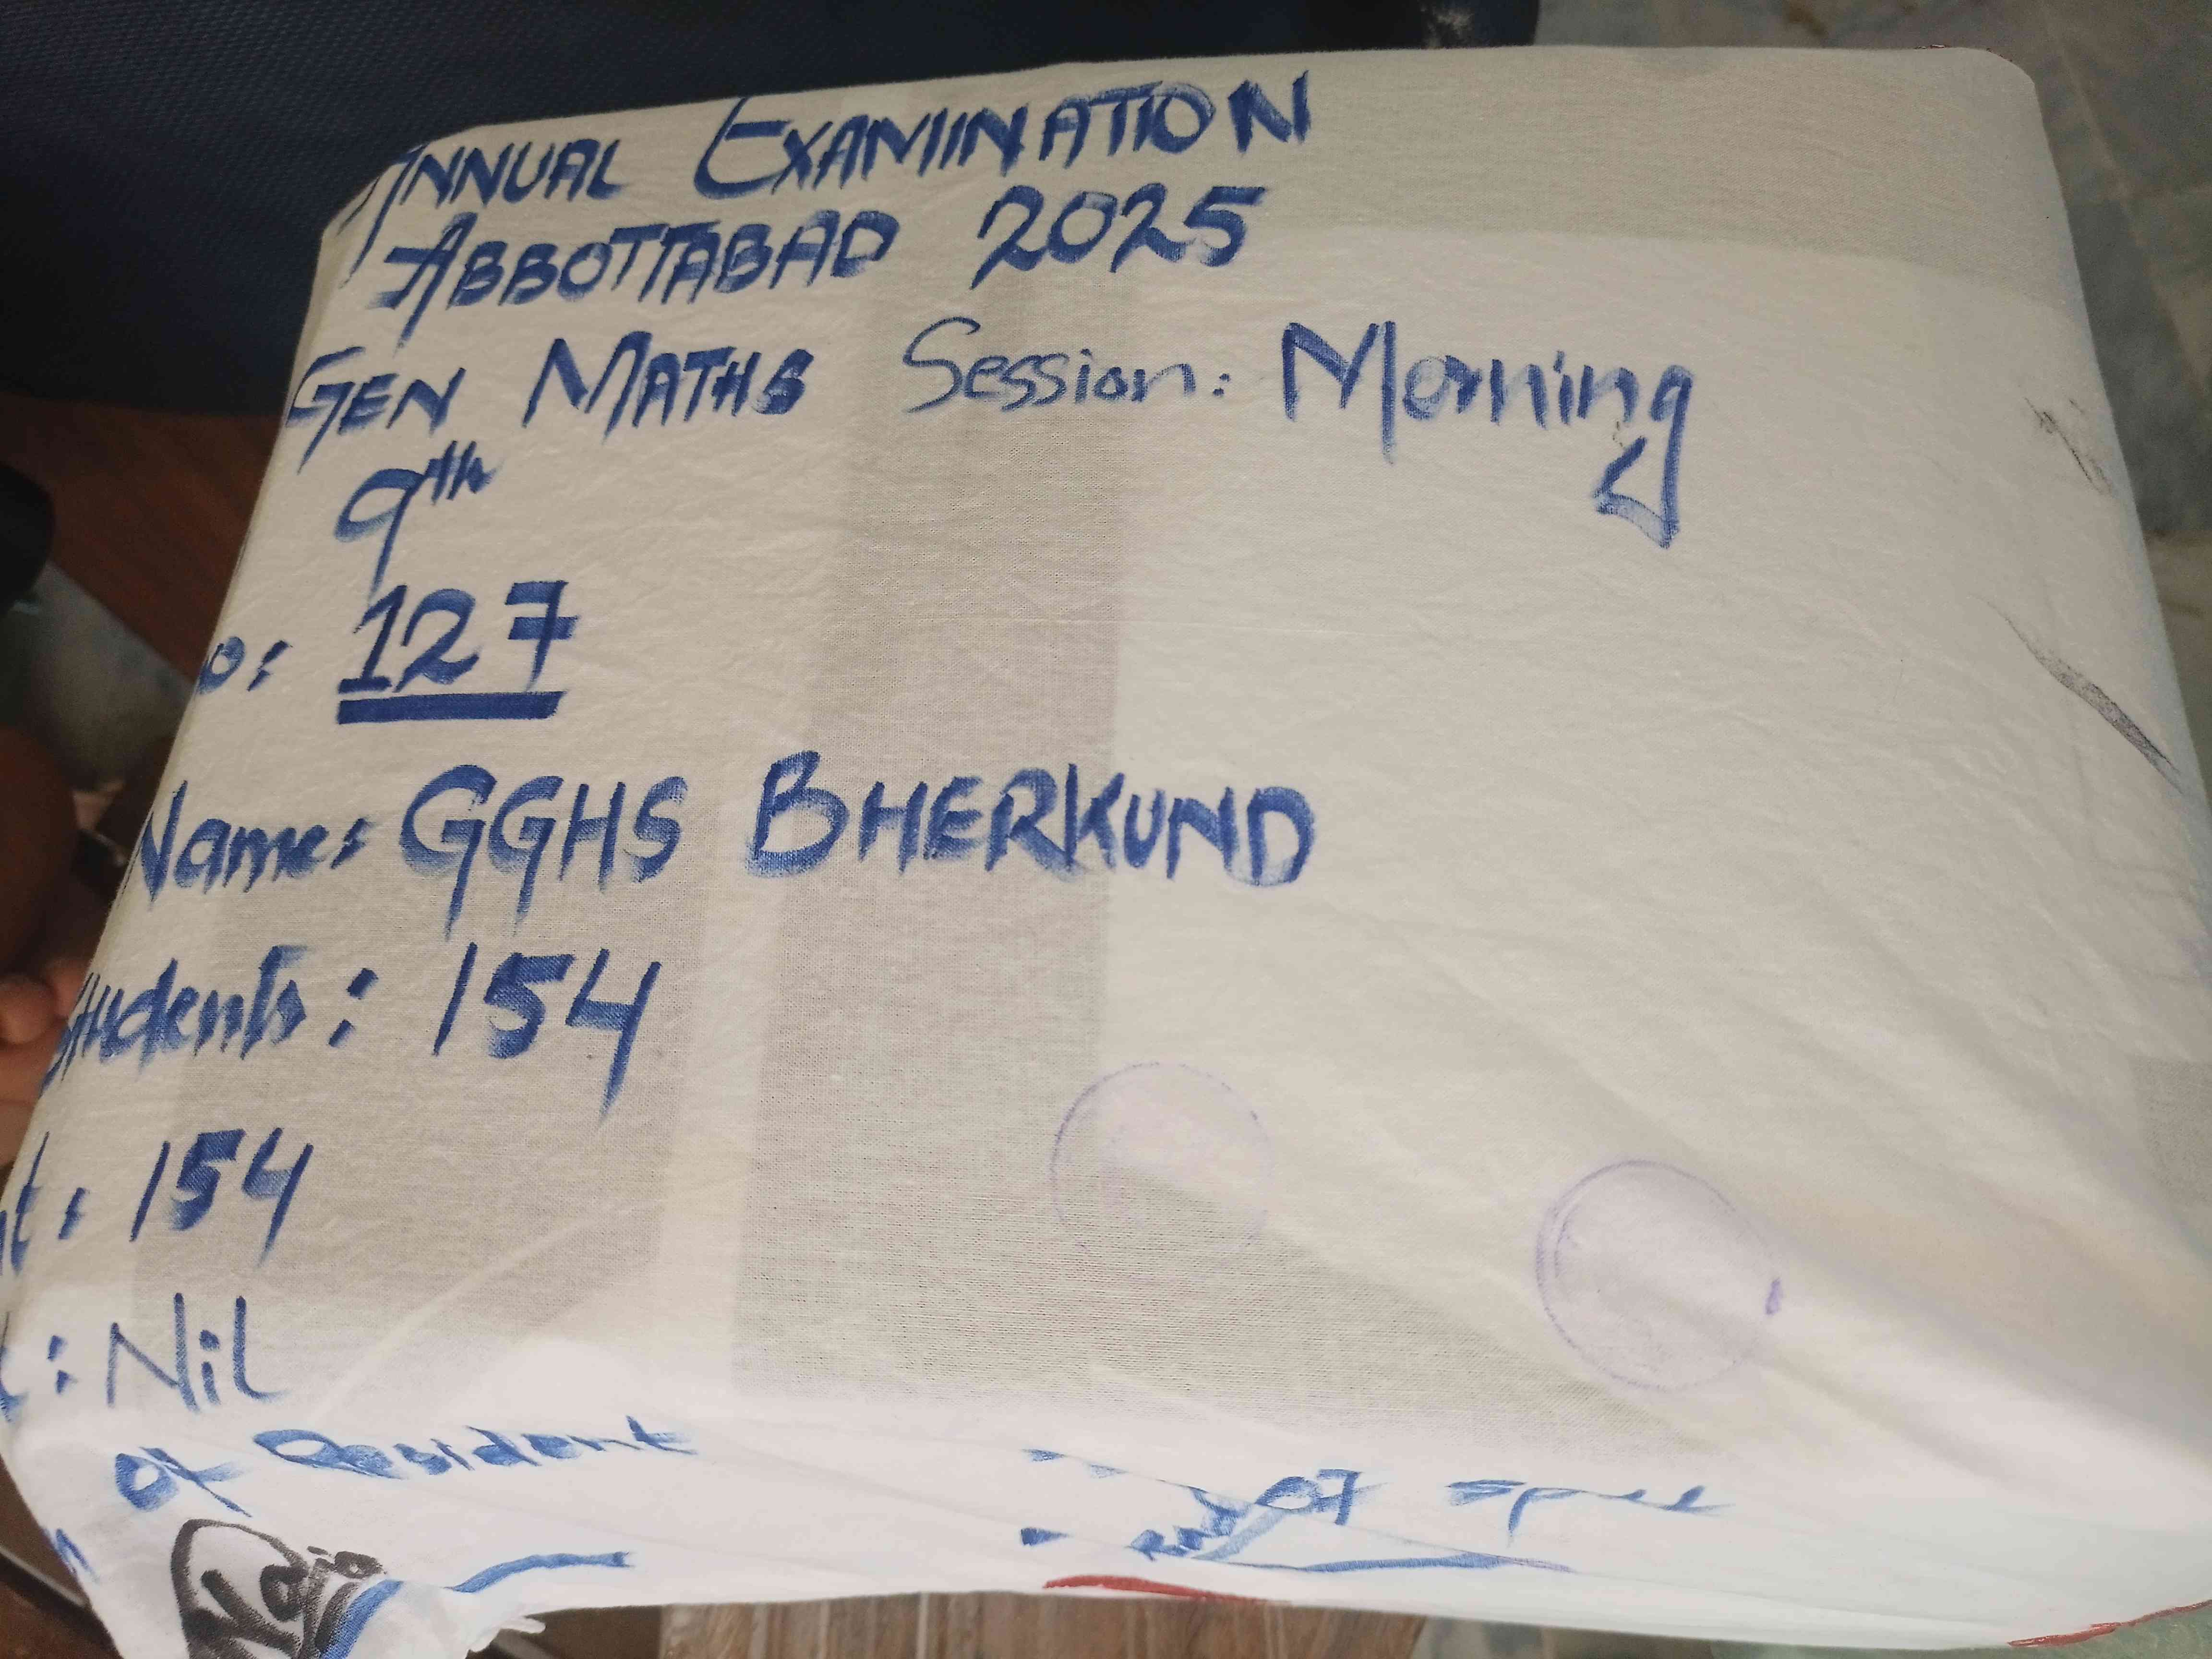 ANNUAL EXAMIINATION
ABBOTTABAD 2025
GEN MATHS Session: Morning
9th
o: 127
Name: GGHS BHERKUND
Students: 154
t: 154
: Nil
of Resident
of